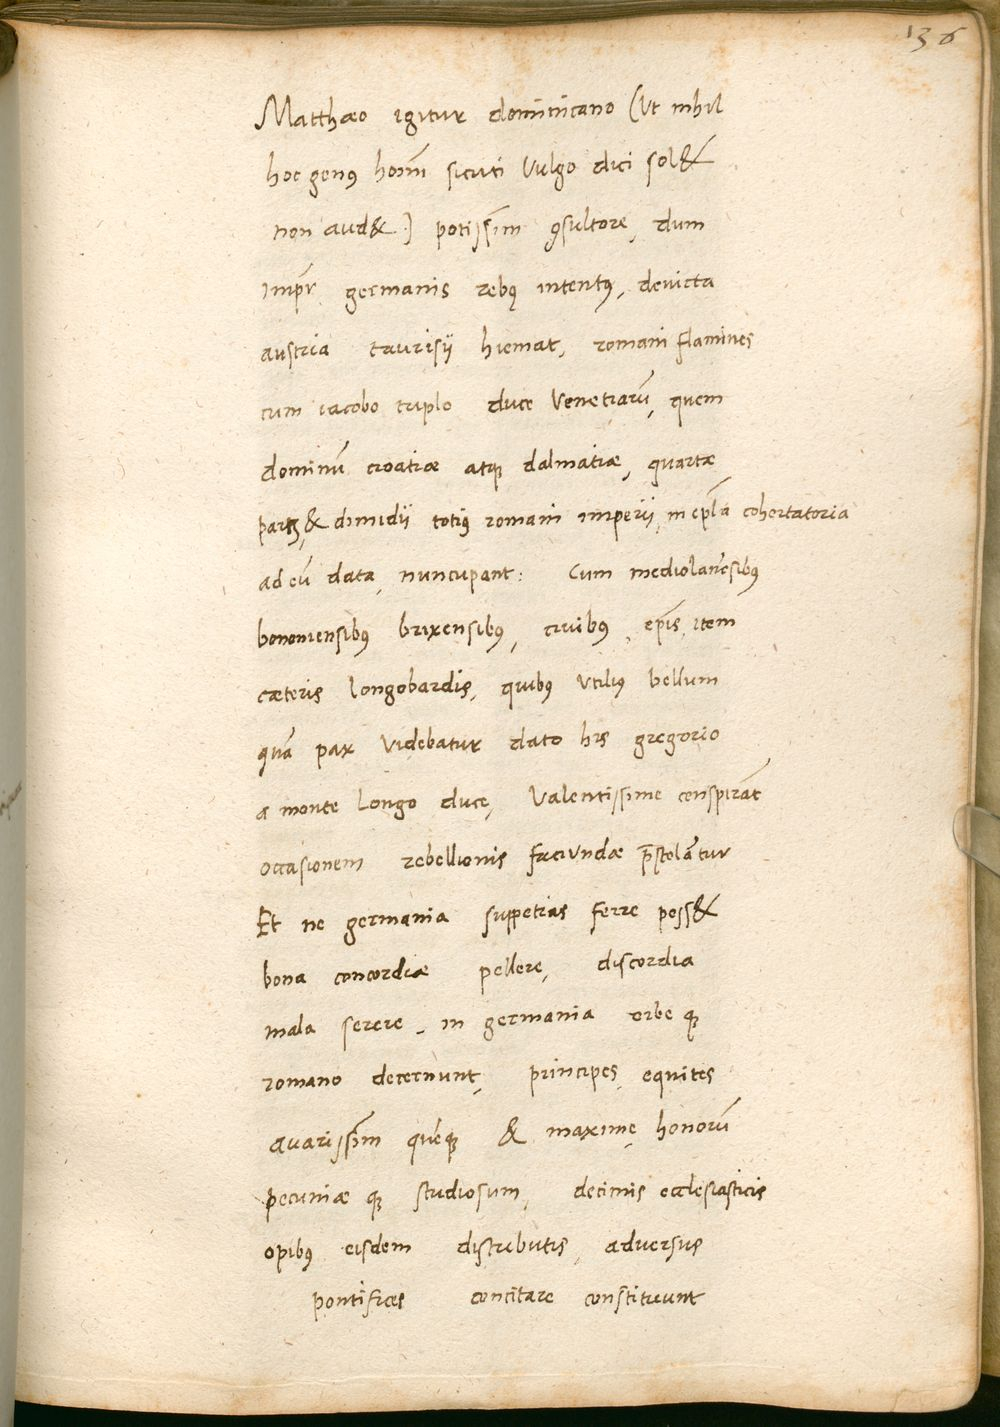 136
Matthæo igitur dominicano (Ut nihil
hoc genꝰ hoım̄ sicuti Vulgo dici sol&
non aud&.) potissim̄ ꝯsultore, dum
impr̄ germanis rebꝰ intentꝰ, devicta
austria taurisij hiemat, romani flamines
cum iacobo tiuplo duce Venetiarū, quem
dominū croatiæ atqꝫ dalmatiæ, quartæ
partꝫ, & dimidij totiꝰ romani imperij, in epl̄a cohortatoria
ad eū data, nuncupant: Cum mediolanēsibꝰ
bononiensibꝰ brixensibꝰ, civibꝰ, ep̄is item
cæteris longobardis, quibꝰ Utiliꝰ bellum
quā pax Videbatur dato his gregorio
a monte Longo duce, Valentissime conspirāt
occasionem rebellionis faciundæ p̄stolātur
Et ne germania suppetias ferre poss&
bona concordiæ pellere, discordia
mala serere, in germania orbe qꝫ
romano decernunt, principes, equites
avarissim̄ quēqꝫ & maxime honorū
pecuniæ qꝫ studiosum, decimis ecclesiasticis
opibꝰ eisdem distributis, adversus
pontifices concitare constituunt